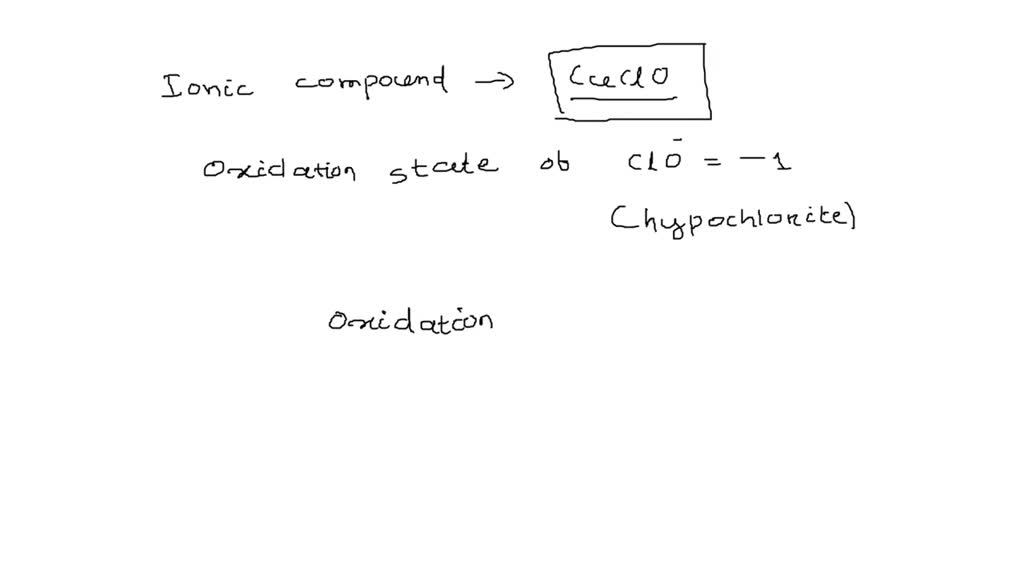 Ionic compound → CuClO
Oxidation state of ClO⁻ = −1
(hypochlorite)
Oxidation